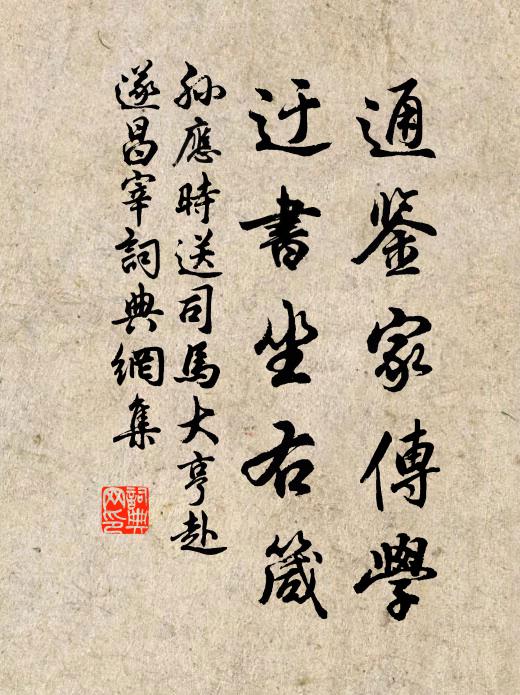 通鉴家傳學
迂書坐右箴
孙應時送司馬大亨赴
遂昌宰詞典網集
詞典网印